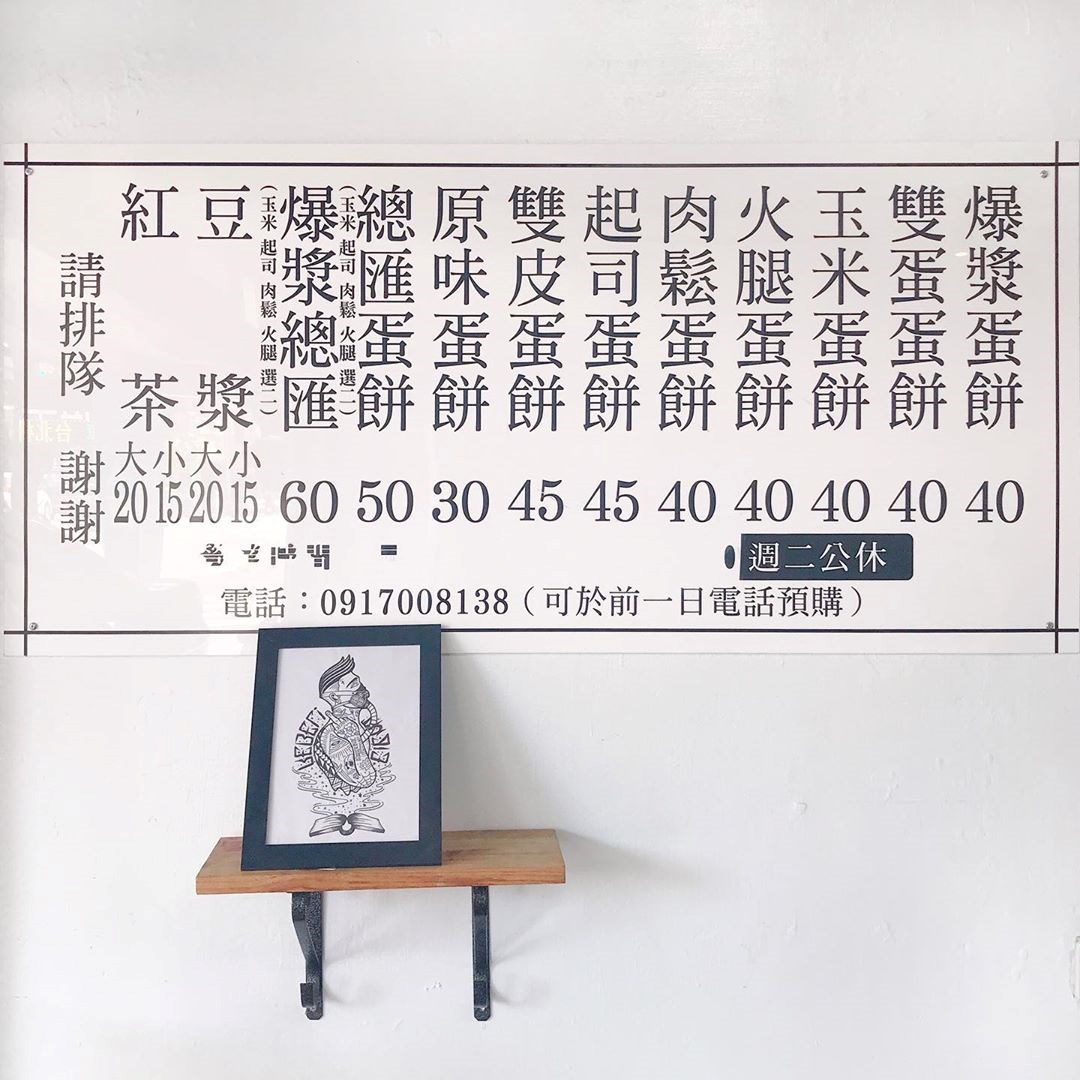 爆漿蛋餅 40
雙蛋蛋餅 40
玉米蛋餅 40
火腿蛋餅 40
肉鬆蛋餅 40
起司蛋餅 45
雙皮蛋餅 45
原味蛋餅 30
總匯蛋餅 50
(玉米 起司 肉鬆 火腿 選二)
爆漿總匯 60
(玉米 起司 肉鬆 火腿 選二)
豆漿 小15 大20
紅茶 小15 大20
請排隊 謝謝
週二公休
電話：0917008138（可於前一日電話預購）